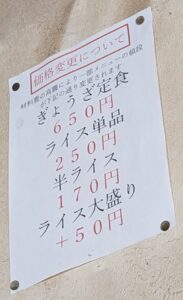 価格変更について
材料費の高騰により一部メニューの値段
が下記の通り変更されます
ぎょうざ定食
650円
ライス単品
250円
半ライス
170円
ライス大盛り
+50円